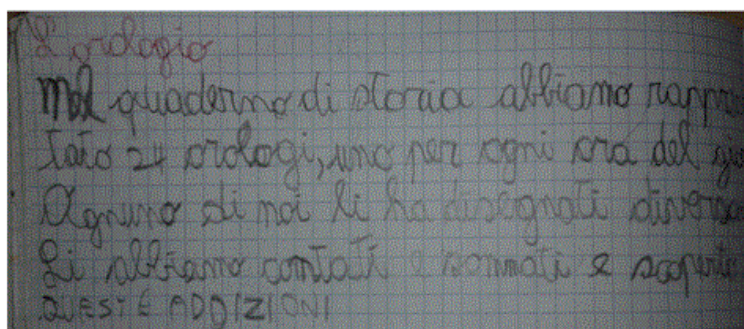 L'orologio
Nel quaderno di storia abbiamo rappre
tato 24 orologi, uno per ogni ora del gio
Ognuno di noi li ha disegnati diversa
Li abbiamo contati e sommati e scoperto
QUESTE ADDIZIONI